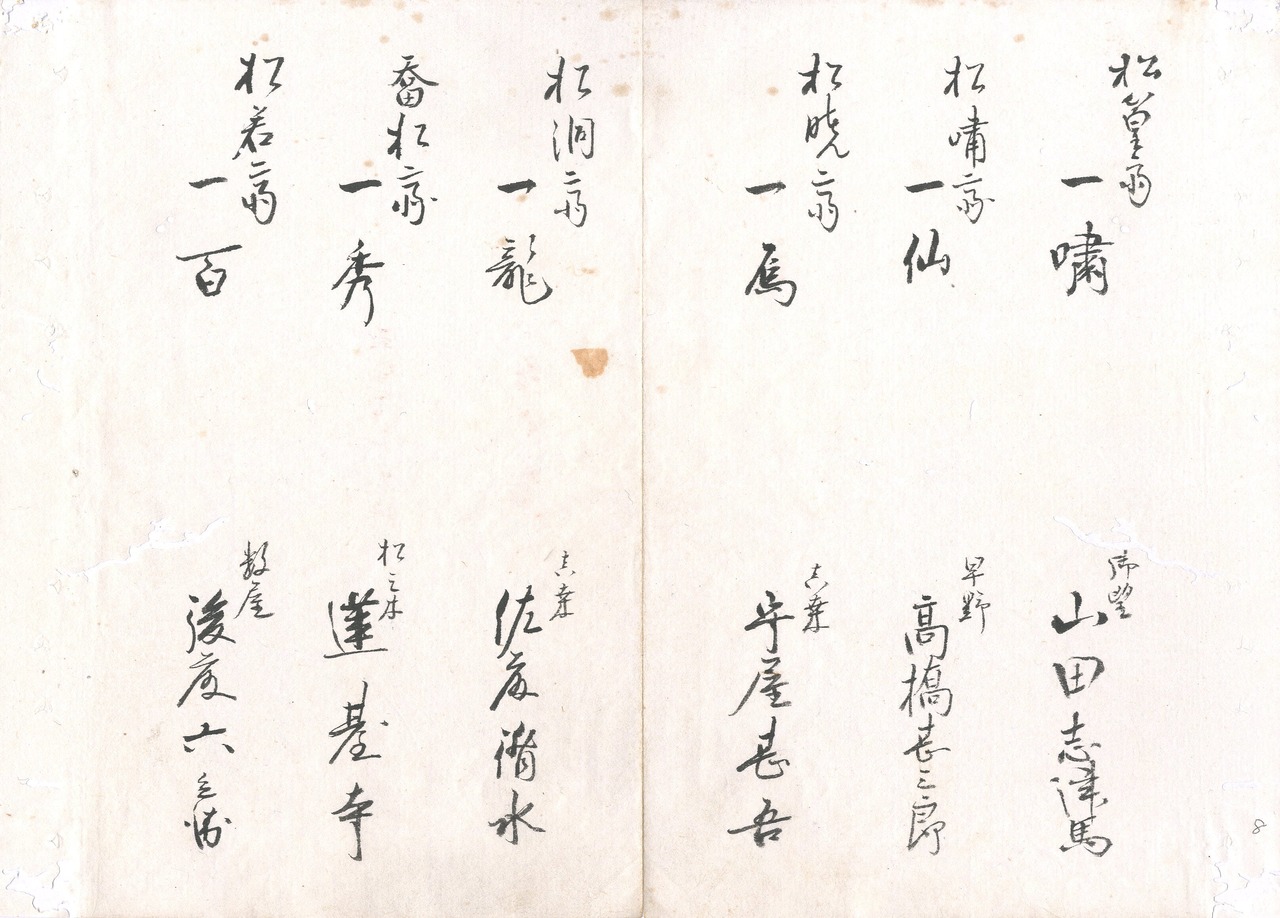 松篁斎
一嘯
御望
山田志津馬
松嘯斎
一仙
早野
高橋甚三郎
松暁斎
一馬
真葉
守屋甚吾
松洞斎
一龍
真葉
佐藤脩水
番松斎
一秀
松之木
蓮臺寺
松若斎
一百
数屋
後藤六
8